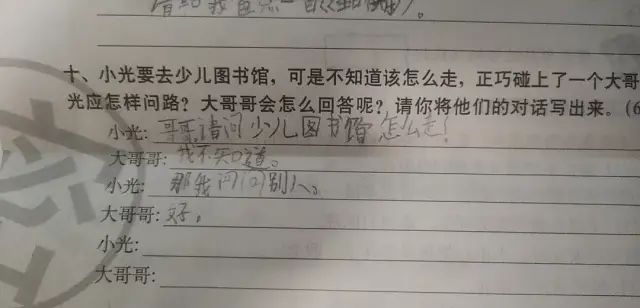 十、小光要去少儿图书馆，可是不知道该怎么走，正巧碰上了一个大哥
光应怎样问路？大哥哥会怎么回答呢？请你将他们的对话写出来。（6
小光：哥哥请问少儿图书馆怎么走！
大哥哥：我不知道。
小光：那我问问别人。
大哥哥：好。
小光：
大哥哥：